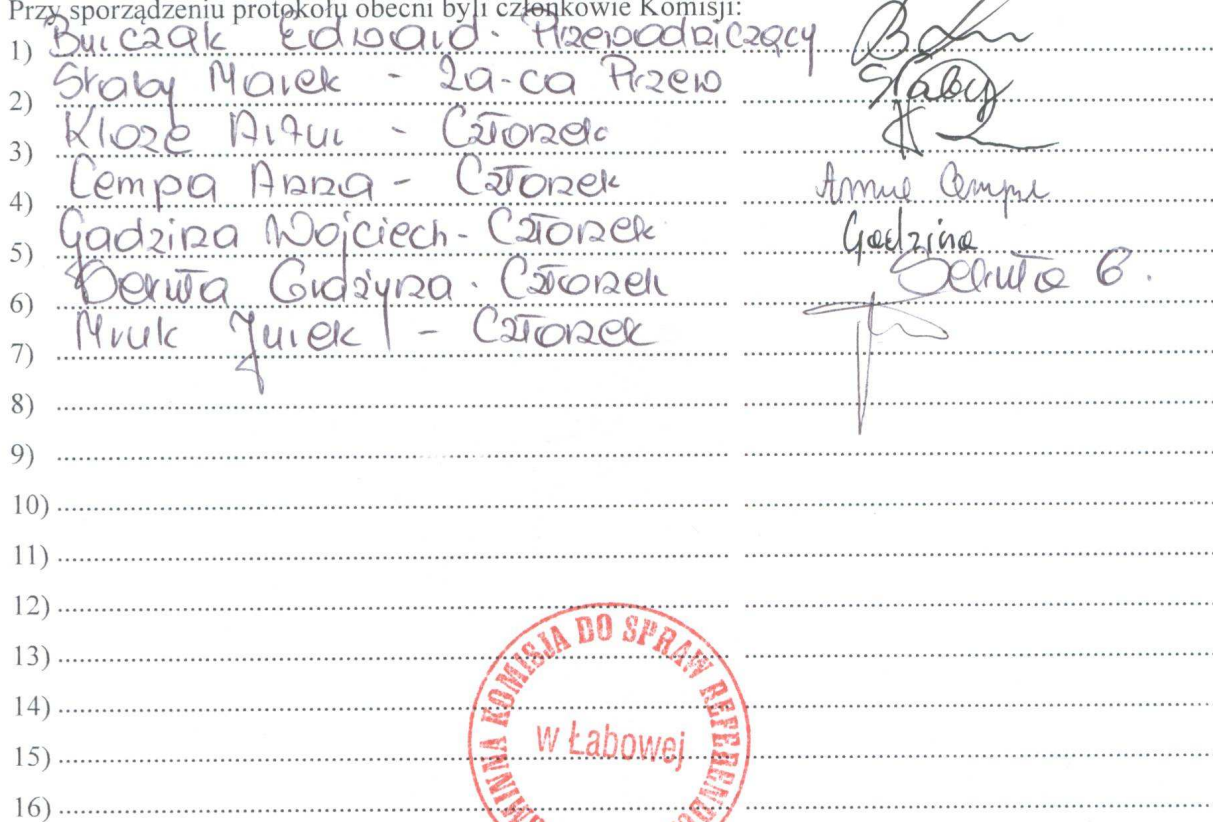 Przy sporządzeniu protokołu obecni byli członkowie Komisji:
1) Burczak Edward - Przewodniczący
2) Słaby Marek - Za-ca Przew Słaby
3) Artur - Członek
4) Cempa Anna - Członek Anna Cempa
5) Gadzina Wojciech - Członek Gadzina
6) Grażyna - Członek G.
7) Mruk Jurek - Członek
8)
9)
10)
11)
12)
13)
14)
15)
16)
KOMISJA DO SPRAW
w Łabowej